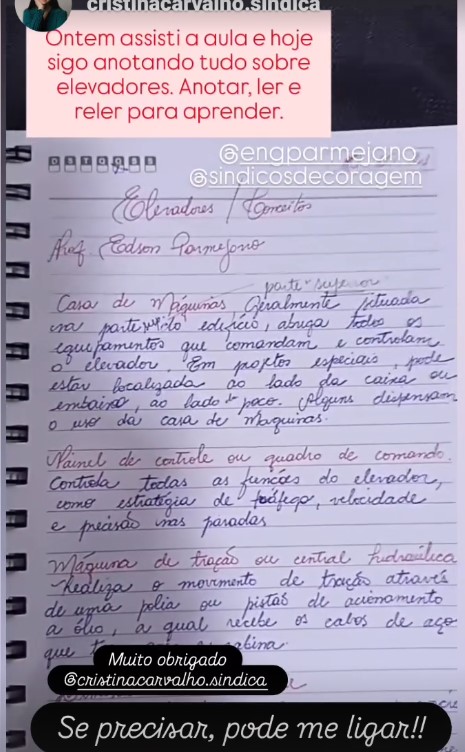 cristinacarvalho.sindica
Ontem assisti a aula e hoje
sigo anotando tudo sobre
elevadores. Anotar, ler e
reler para aprender.
@engparmejano
@sindicosdecoragem
Elevadores / Conceitos
Prof. Edson Parmejano
parte superior
Casa de Máquinas Geralmente situada
na parte do edifício, abriga todos os
equipamentos que comandam e controlam
o elevador. Em projtos especiais, pode
estar localizada ao lado da caixa ou
embaixo, ao lado do poço. Alguns dispensam
o uso da casa de maquinas.
Painel de controle ou quadro de comando.
Controla todas as funções do elevador,
como estratégia de tráfego, velocidade
e precisão nas paradas
Máquina de tração ou central hidráulica
Realiza o movimento de tração através
de uma polia ou pistão de acionamento
a óleo, a qual recebe os cabos de aço
que cabina.
Muito obrigado
@cristinacarvalho.sindica
Se precisar, pode me ligar!!